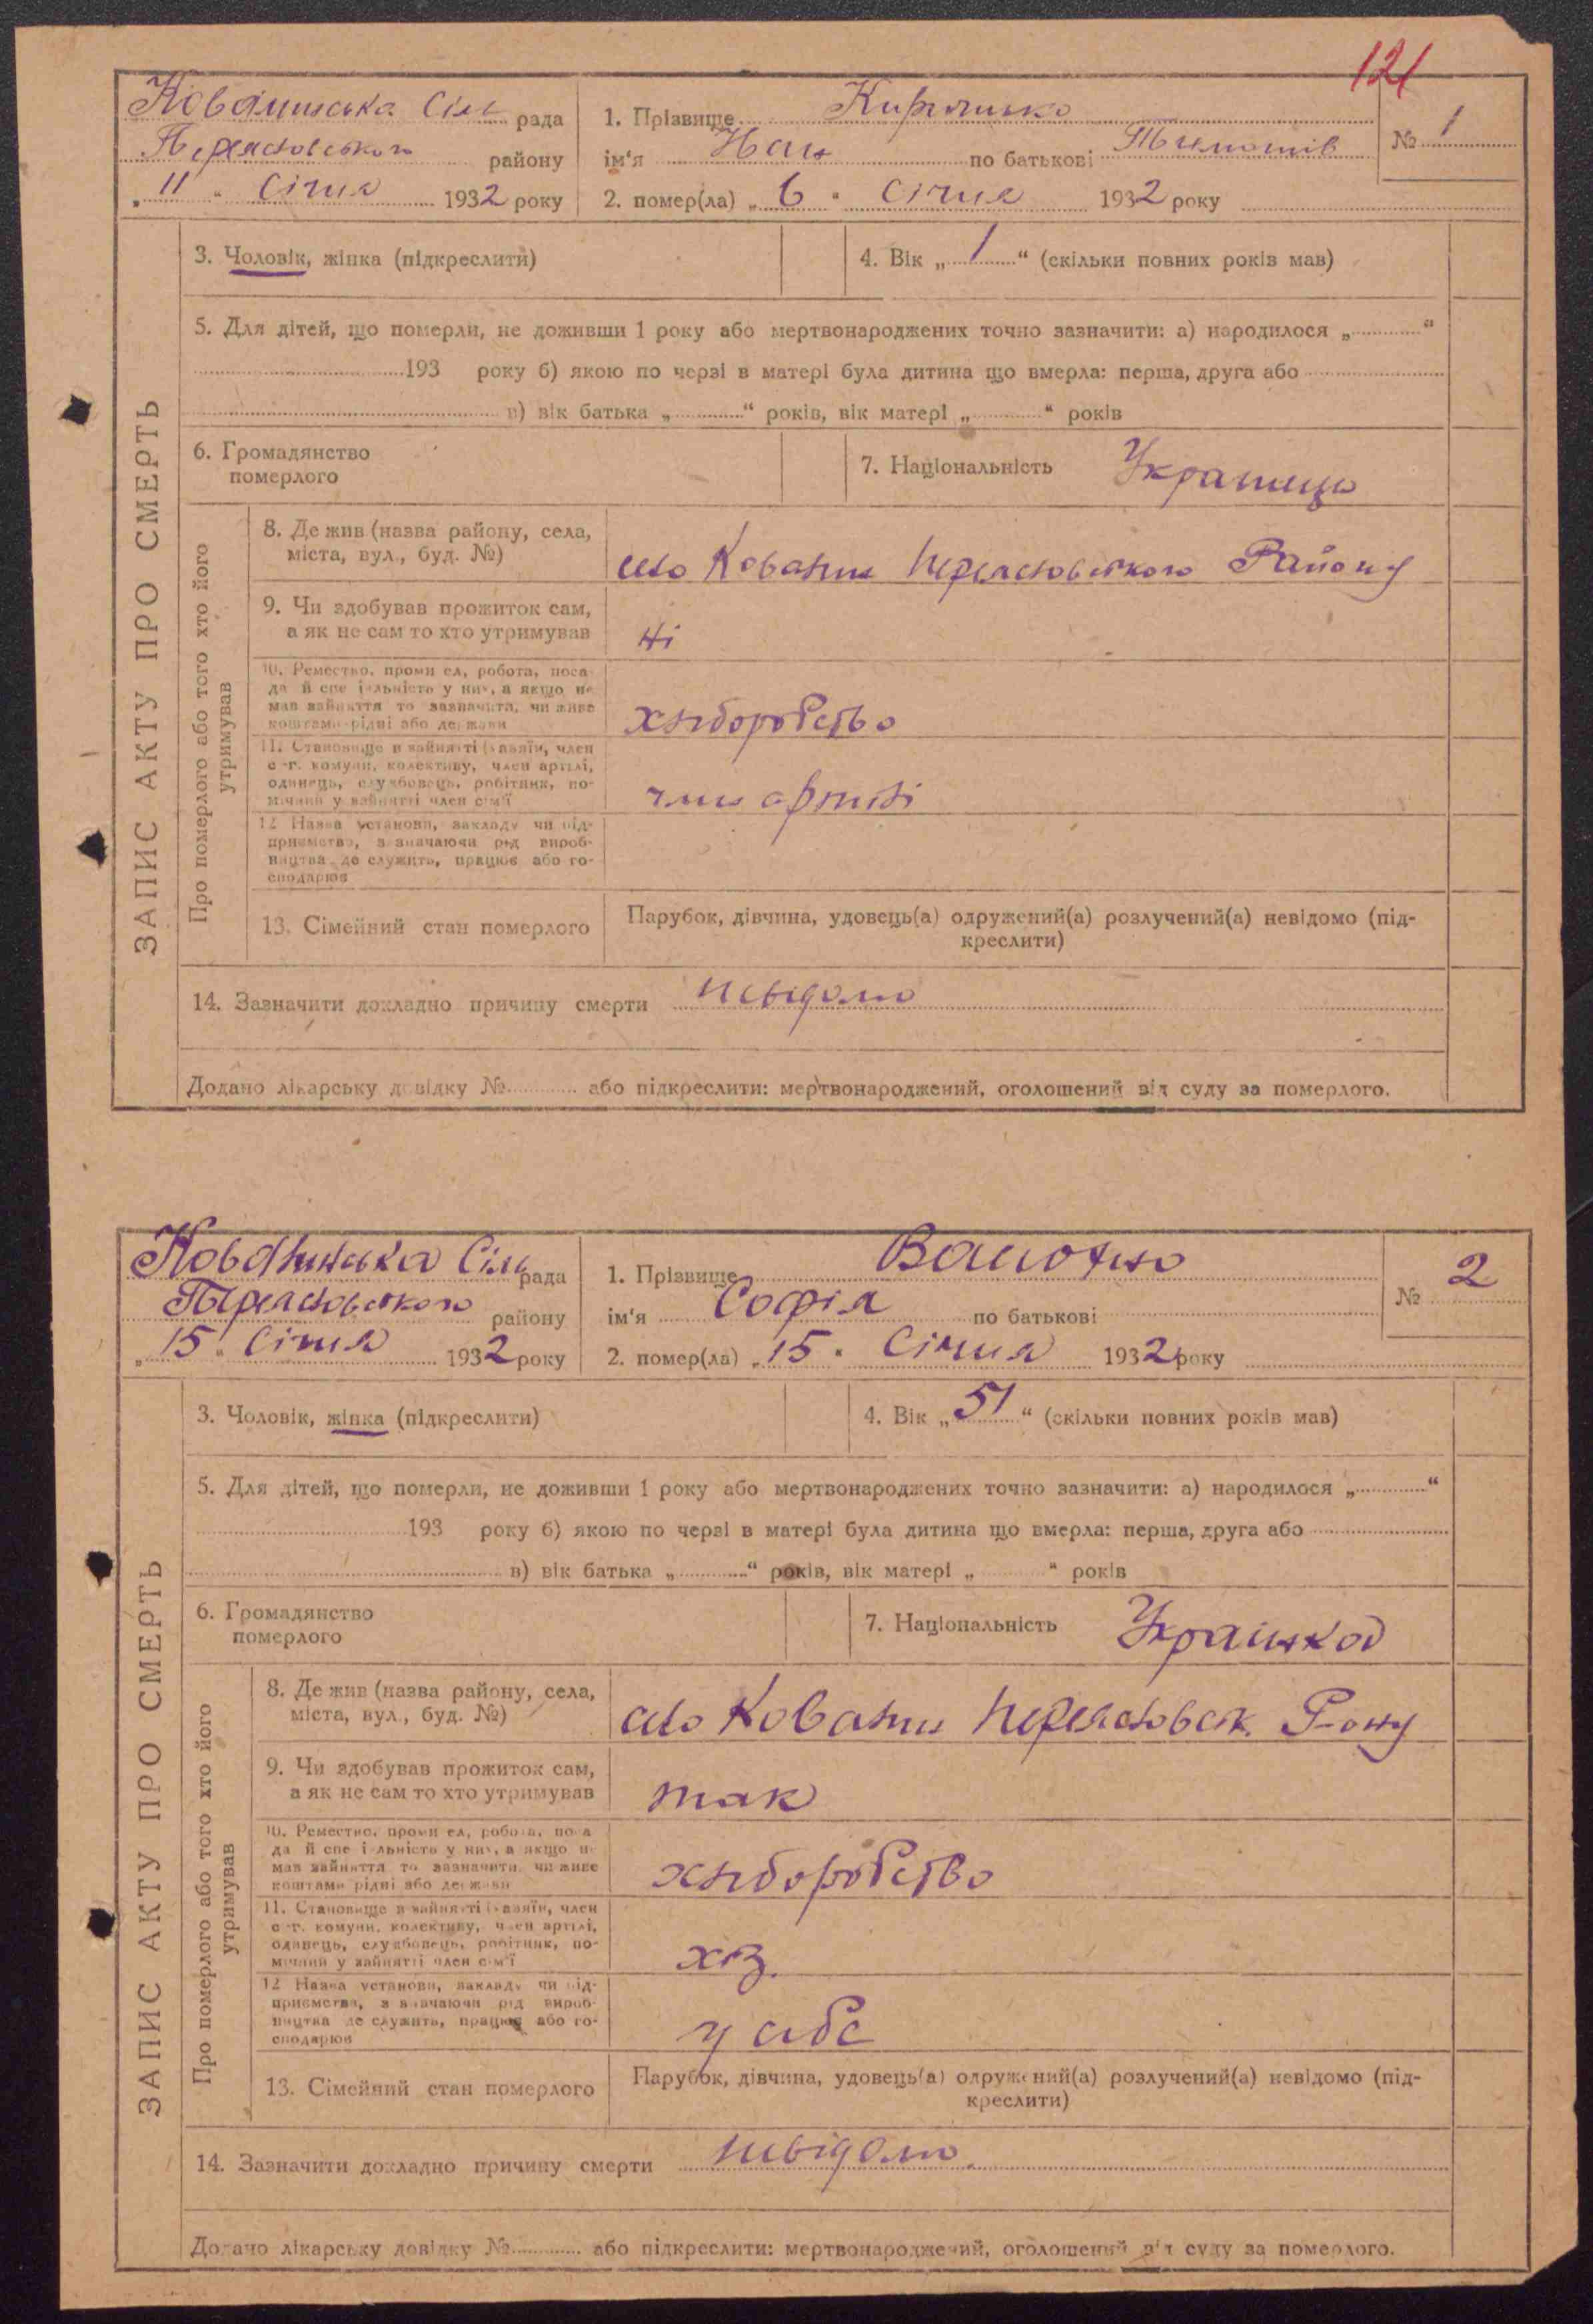 121
Ковалинська Сіль рада
Переясловського району
„ 11 " Січня 1932 року
1. Прізвище
ім'я Іван по батькові
№ 1
2. помер(ла) „ 6 " Січня 1932 року
ЗАПИС АКТУ ПРО СМЕРТЬ
3. Чоловік, жінка (підкреслити)
4. Вік „ 1 “ (скільки повних років мав)
5. Для дітей, що померли, не доживши 1 року або мертвонароджених точно зазначити: а) народилося „ “
193 року б) якою по черзі в матері була дитина що вмерла: перша, друга або
в) вік батька „ “ років, вік матері „ “ років
6. Громадянство
померлого
7. Національність Украинець
Про померлого або того хто його
утримував
8. Де жив (назва району, села,
міста, вул., буд. №)
село Ковалин Переясловського Району
9. Чи здобував прожиток сам,
а як не сам то хто утримував
ні
10. Ремество, промисел, робота, поса-
да й спеціяльність у них, а якщо не
мав зайняття то зазначити, чи живе
коштами рідні або держави
хліборобство
11. Становище в зайнятті (хазяїн, член
с.-г. комуни, колективу, член артілі,
одинець, службовець, робітник, по-
мічний у зайнятті член сім'ї
член артілі
12. Назва установи, закладу чи під-
приємства, зазначаючи род вироб-
ництва де служить, працює або го-
сподарює
13. Сімейний стан померлого
Парубок, дівчина, удовець(а) одружений(а) розлучений(а) невідомо (під-
креслити)
14. Зазначити докладно причину смерти невідомо
Додано лікарську довідку № або підкреслити: мертвонароджений, оголошений від суду за померлого.
Ковалинська Сіль рада
Переясловського району
„ 15 " Січня 1932 року
1. Прізвище
ім'я Софія по батькові
№ 2
2. помер(ла) „ 15 " Січня 1932 року
ЗАПИС АКТУ ПРО СМЕРТЬ
3. Чоловік, жінка (підкреслити)
4. Вік „ 51 “ (скільки повних років мав)
5. Для дітей, що померли, не доживши 1 року або мертвонароджених точно зазначити: а) народилося „ “
193 року б) якою по черзі в матері була дитина що вмерла: перша, друга або
в) вік батька „ “ років, вік матері „ “ років
6. Громадянство
померлого
7. Національність Украінка
Про померлого або того хто його
утримував
8. Де жив (назва району, села,
міста, вул., буд. №)
село Ковалин Переясловськ. Р-ону
9. Чи здобував прожиток сам,
а як не сам то хто утримував
так
10. Ремество, промисел, робота, поса-
да й спеціяльність у них, а якщо не
мав зайняття то зазначити, чи живе
коштами рідні або держави
хліборобство
11. Становище в зайнятті (хазяїн, член
с.-г. комуни, колективу, член артілі,
одинець, службовець, робітник, по-
мічний у зайнятті член сім'ї
хаз.
12. Назва установи, закладу чи під-
приємства, зазначаючи род вироб-
ництва де служить, працює або го-
сподарює
у себе
13. Сімейний стан померлого
Парубок, дівчина, удовець(а) одружений(а) розлучений(а) невідомо (під-
креслити)
14. Зазначити докладно причину смерти невідомо.
Додано лікарську довідку № або підкреслити: мертвонароджений, оголошений від суду за померлого.